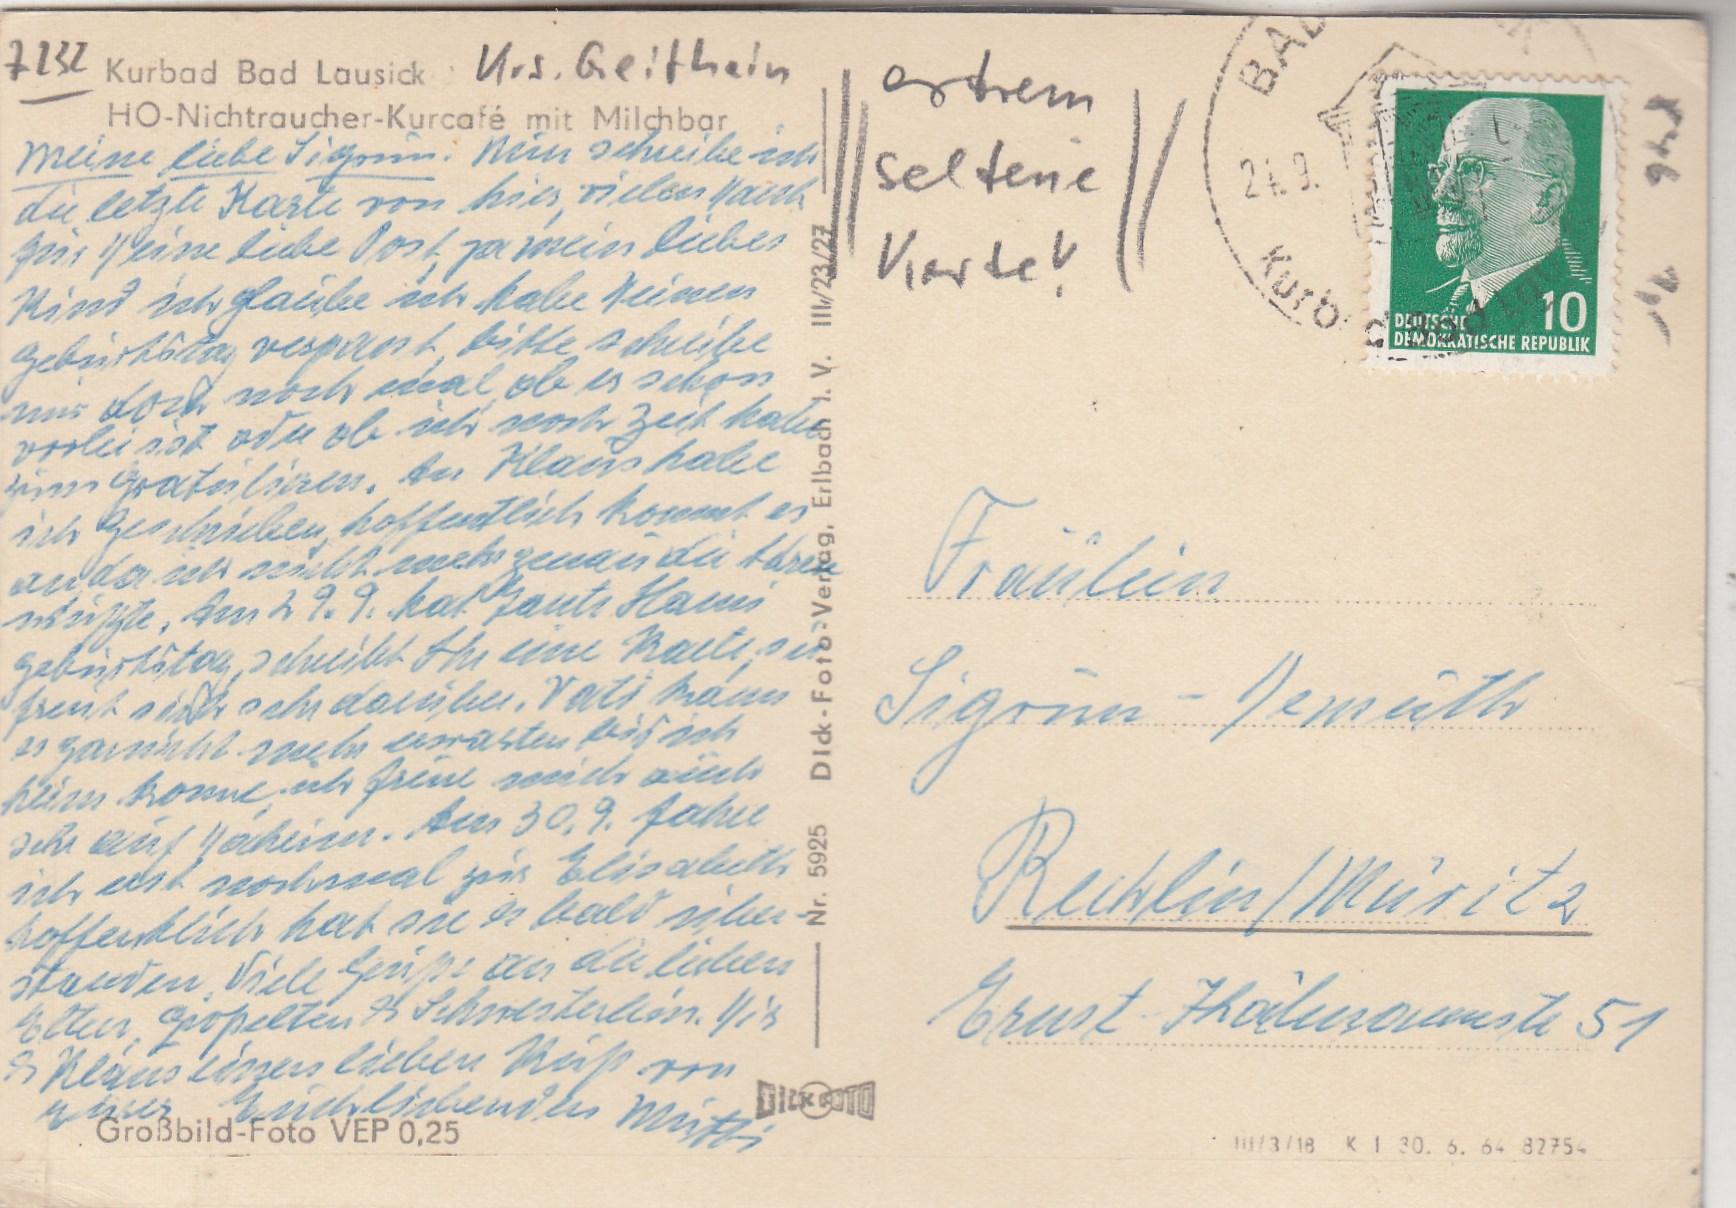 7232
Kurbad Bad Lausick Krs. Geithain
HO-Nichtraucher-Kurcafé mit Milchbar
Meine liebe Sigrun. Nun schreibe ich
die letzte Karte von hier, vielen Dank
für Deine liebe Post, ja mein liebes
Kind ich glaube ich habe Deinen
Geburtstag verpasst, bitte schreibe
mir doch noch einmal ob es schon
vorbei ist oder ob ich noch Zeit habe
zum gratulieren. An Klaus habe
ich geschrieben, hoffentlich kommt es
an da ich nicht mehr genau die
wußte. Am 29.9. hat Tante Hanni
Geburtstag, schreibt Ihr eine Karte, sie
freut sich sehr darüber. Vati kann
es garnicht mehr erwarten bis ich
heim komme, ich freue mich auch
sehr auf daheim. Am 30.9. fahre
ich erst nochmal zur Elisabeth
hoffentlich hat sie es bald über-
standen. Viele Grüße an die lieben
Eltern, Großeltern & Schwesterlein. Dir
& Klaus einen lieben Kuß von
Eurer Euch liebenden Mutti
Großbild-Foto VEP 0,25
Nr. 5925 Dick-Foto-Verlag, Erlbach i. V. III/23/27
DICK FOTO
extrem
seltene
Karte!
BAD
24.9.
Kurbad
10
DEUTSCHE
DEMOKRATISCHE REPUBLIK
Fräulein
Sigrun Demuth
Rechlin/Müritz
Ernst Thälmannstr 51
III/3/18 K 1 30. 6. 64 82754